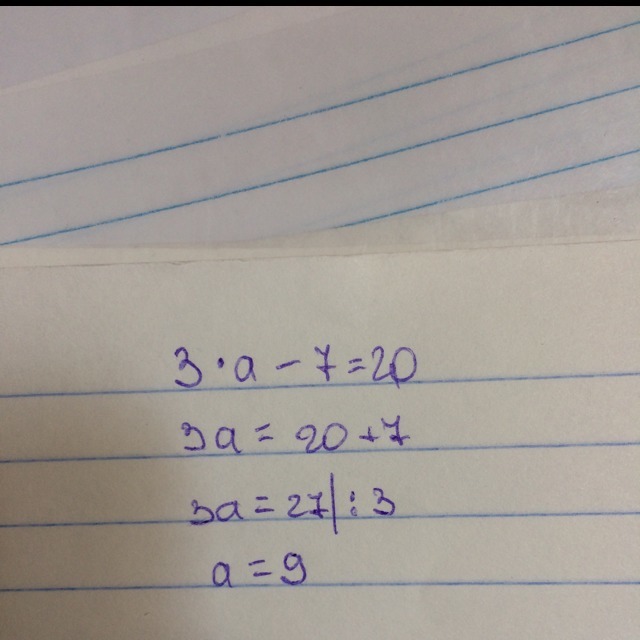 3·a - 7=20
3a = 20+7
3a = 27|:3
a = 9